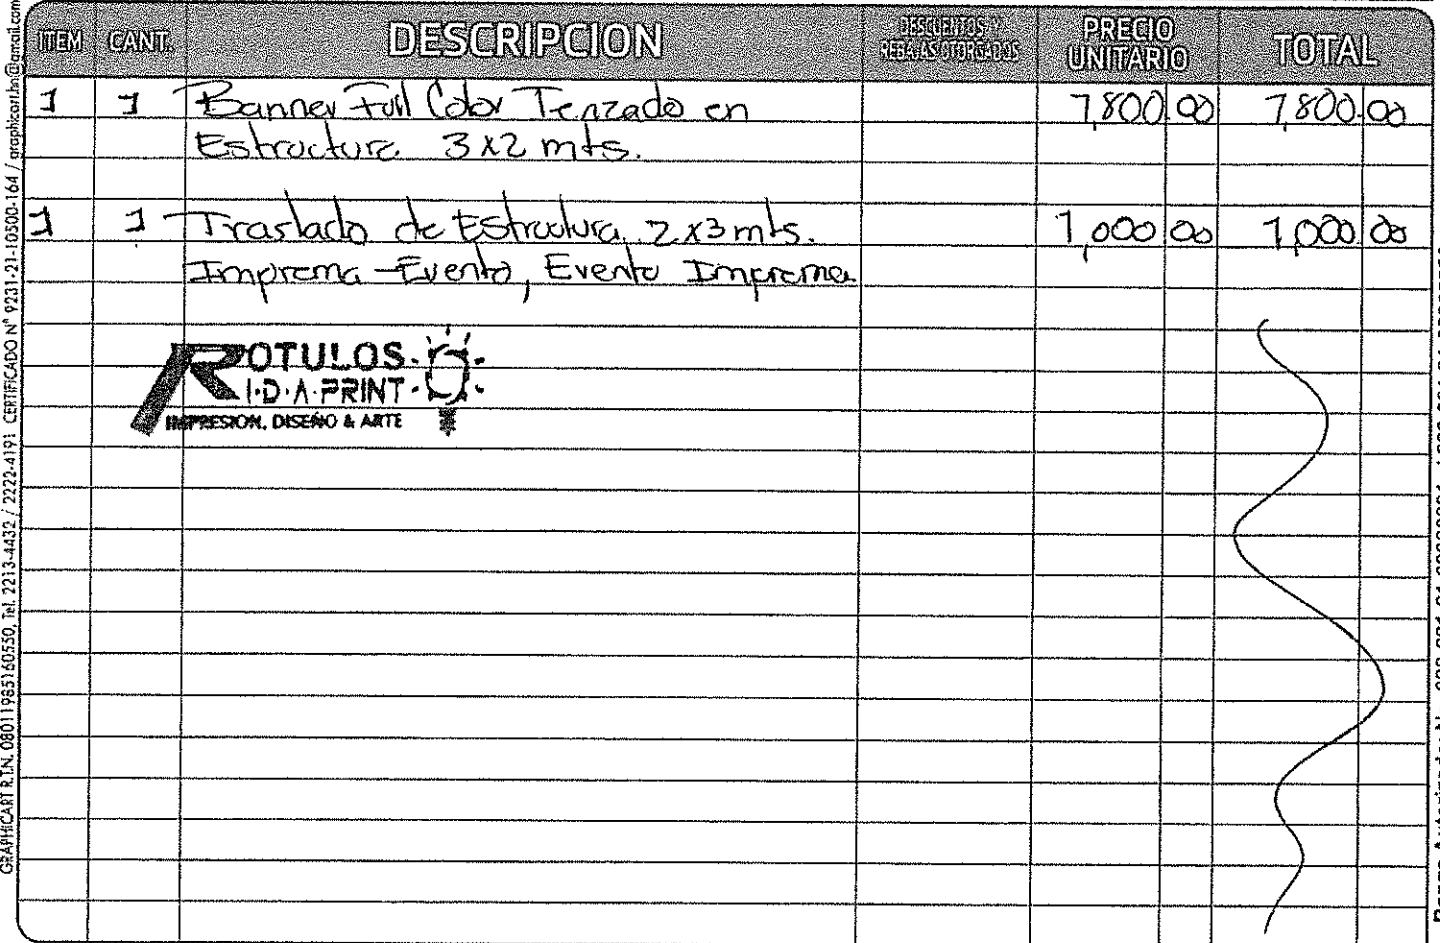 ITEM CANT. DESCRIPCION DESCUENTOS Y REBAJAS OTORGADOS PRECIO UNITARIO TOTAL
1 1 Banner Full Color Tenzado en 1,800.00 1,800.00
Estructura 3x2 mts.
1 1 Traslado de Estructura 2x3 mts. 1,000.00 1,000.00
Imprema-Evento, Evento Imprema
ROTULOS
I·D·A·PRINT
IMPRESION, DISEÑO & ARTE
GRAPHICART R.T.N. 08011985160550, Tel. 2213-4432 / 2222-4191 CERTIFICADO N° 9231-21-10500-164 / graphicart.hn@gmail.com